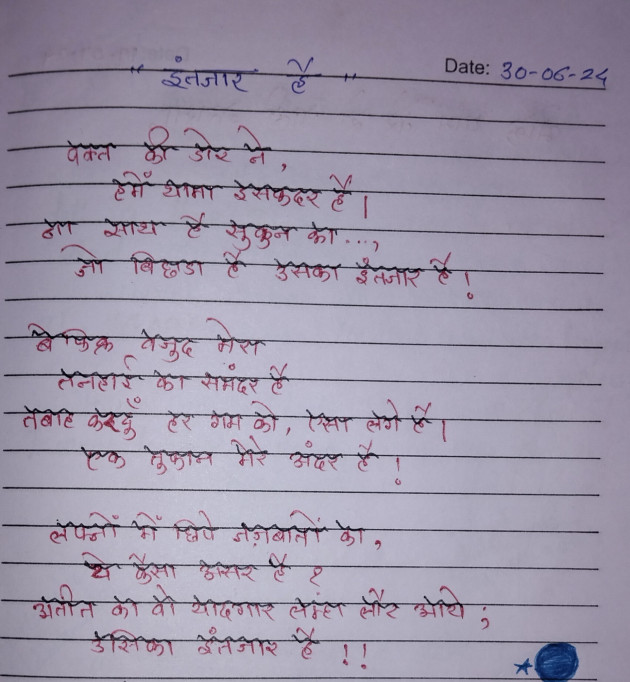 Date: 30-06-24
" इंतजार है "
वक्त की डोर ने,
हमें थामा इसकदर है।
ना साथ है सुकुन का...,
जो बिछडा है उसका इंतजार है!
बेफिक्र वजुद मेरा
तनहाई का समंदर है
तबाह करदुँ हर गम को, एसा लगे है।
एक तुफान मेरे अंदर है!
लफ्जों में छिपे जज़बातों का,
ये कैसा असर है ?
अतीत का वो यादगार लम्हा लौट आये;
उसिका इंतजार है !!